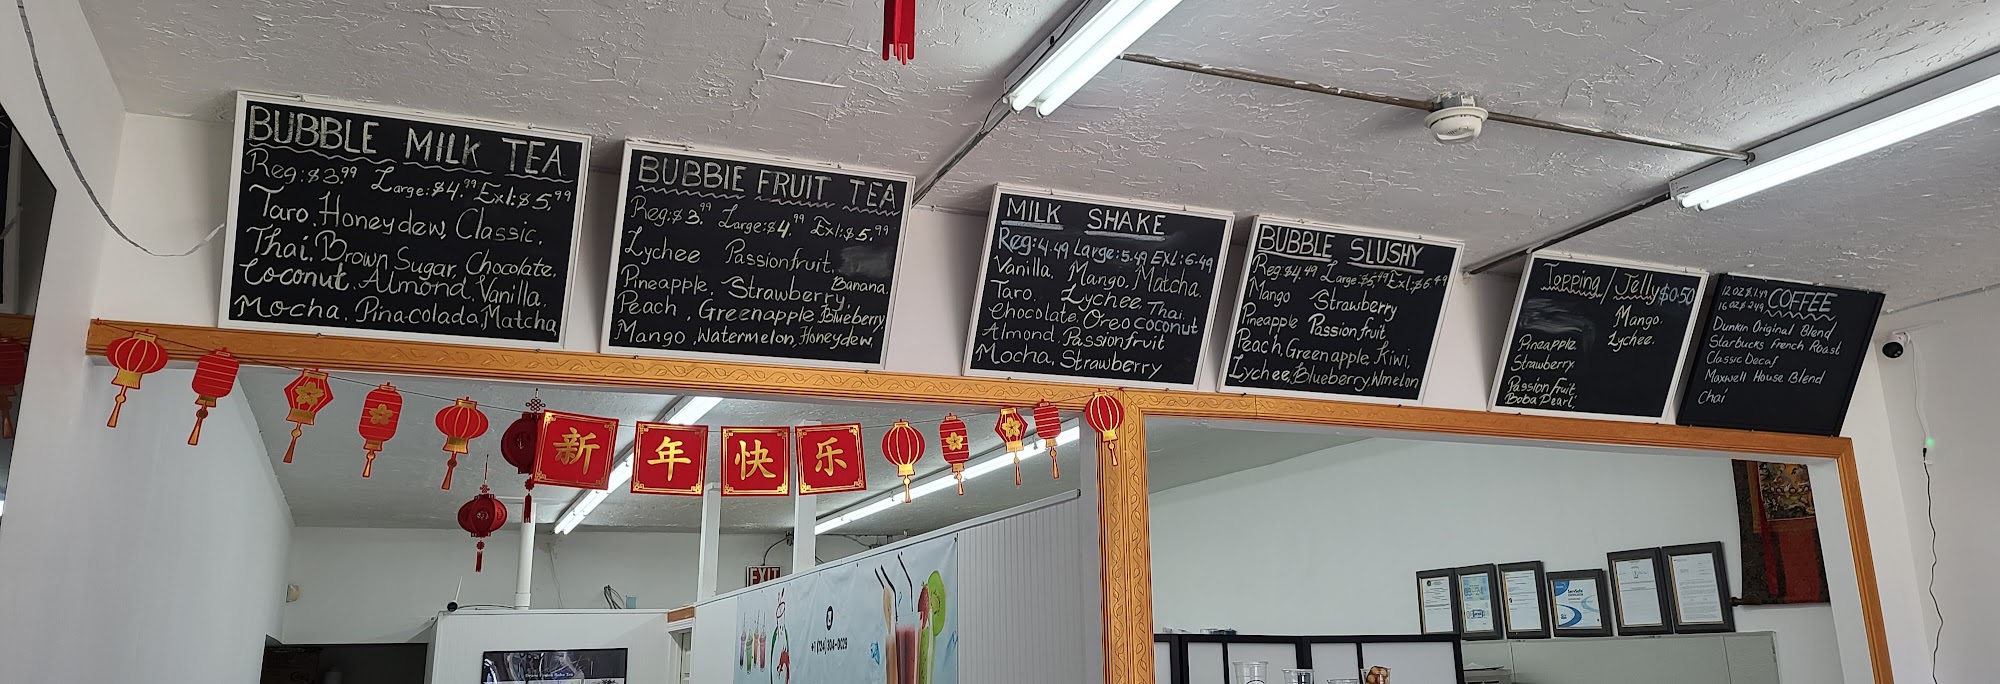 BUBBLE MILK TEA
Reg:$3.99 Large:$4.99 Exl:$5.99
Taro, Honeydew, Classic,
Thai, Brown Sugar, Chocolate,
Coconut, Almond, Vanilla,
Mocha, Pinacolada, Matcha
BUBBIE FRUIT TEA
Reg:$3.99 Large:$4.99 Exl:$5.99
Lychee Passionfruit,
Pineapple, Strawberry, Banana,
Peach, Greenapple, Blueberry
Mango, Watermelon, Honeydew,
MILK SHAKE
Reg:4.49 Large:5.49 Exl:6.49
Vanilla, Mango, Matcha
Taro, Lychee, Thai,
Chocolate, Oreo coconut
Almond, Passionfruit
Mocha, Strawberry
BUBBLE SLUSHY
Reg:$4.49 Large:$5.49 Exl:$6.49
Mango Strawberry
Pineapple Passion fruit
Peach, Greenapple, Kiwi,
Lychee, Blueberry, W.melon
Topping/Jelly $0.50
Mango.
Pineapple Lychee.
Strawberry.
Passion fruit,
Boba Pearl,
12 OZ $1.49 COFFEE
16 OZ $2.49
Dunkin Original Blend
Starbucks French Roast
Classic Decaf
Maxwell House Blend
Chai
新年快乐
EXIT